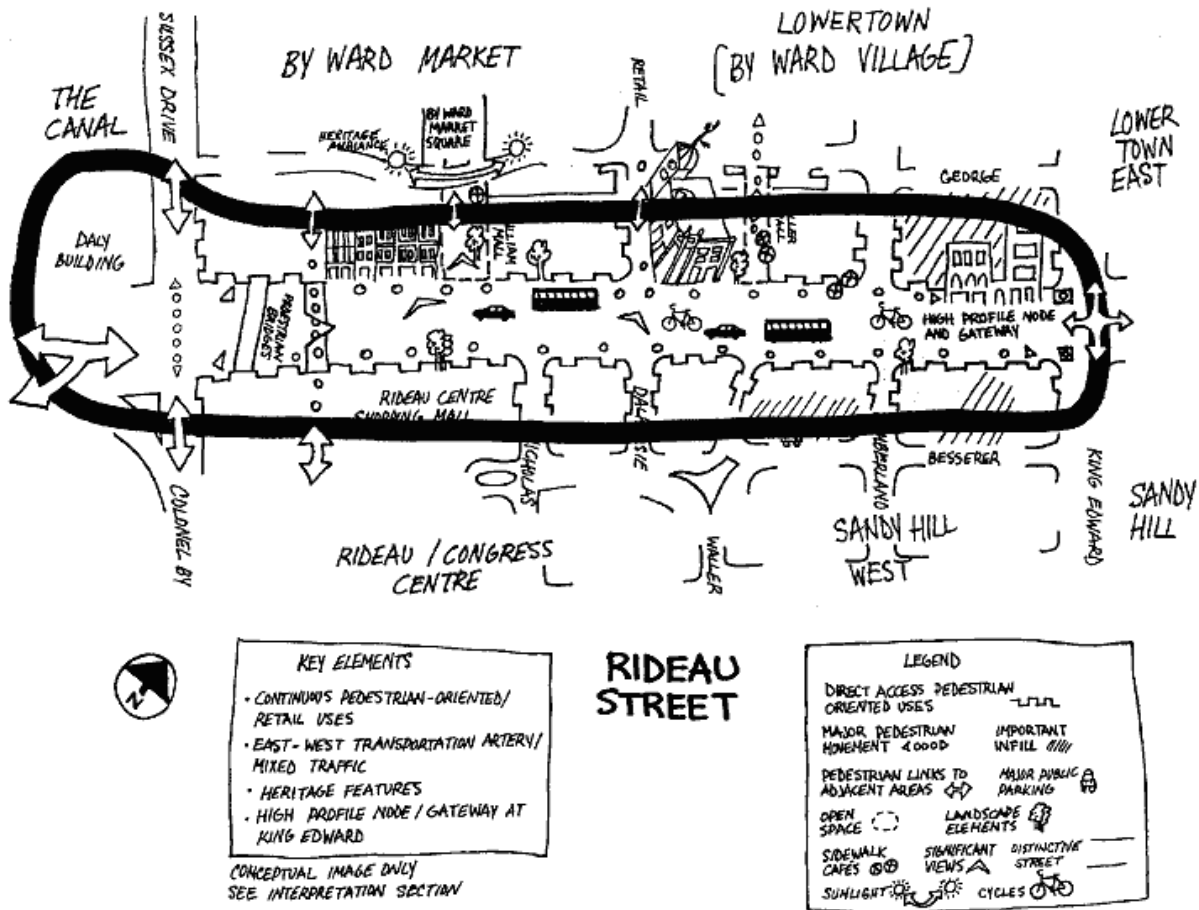 SUSSEX DRIVE
BY WARD MARKET
LOWERTOWN
[BY WARD VILLAGE]
RETAIL
THE
CANAL
HERITAGE
AMBIANCE
BY WARD
MARKET
SQUARE
LOWER
TOWN
EAST
GEORGE
DALY
BUILDING
LLIAM
MALL
LLER
ALL
PEDESTRIAN
BRIDGES
HIGH PROFILE NODE
AND GATEWAY
RIDEAU CENTRE
SHOPPING MALL
NICHOLAS
DALHOUSIE
MBERLAND
BESSERER
KING EDWARD
SANDY
HILL
COLONEL BY
RIDEAU / CONGRESS
CENTRE
WALLER
SANDY HILL
WEST
N
KEY ELEMENTS
• CONTINUOUS PEDESTRIAN-ORIENTED/
RETAIL USES
• EAST-WEST TRANSPORTATION ARTERY/
MIXED TRAFFIC
• HERITAGE FEATURES
• HIGH PROFILE NODE / GATEWAY AT
KING EDWARD
CONCEPTUAL IMAGE ONLY
SEE INTERPRETATION SECTION
RIDEAU
STREET
LEGEND
DIRECT ACCESS PEDESTRIAN
ORIENTED USES
MAJOR PEDESTRIAN
MOVEMENT
IMPORTANT
INFILL
PEDESTRIAN LINKS TO
ADJACENT AREAS
MAJOR PUBLIC
PARKING
OPEN
SPACE
LANDSCAPE
ELEMENTS
SIDEWALK
CAFÉS
SIGNIFICANT
VIEWS
DISTINCTIVE
STREET
SUNLIGHT
CYCLES